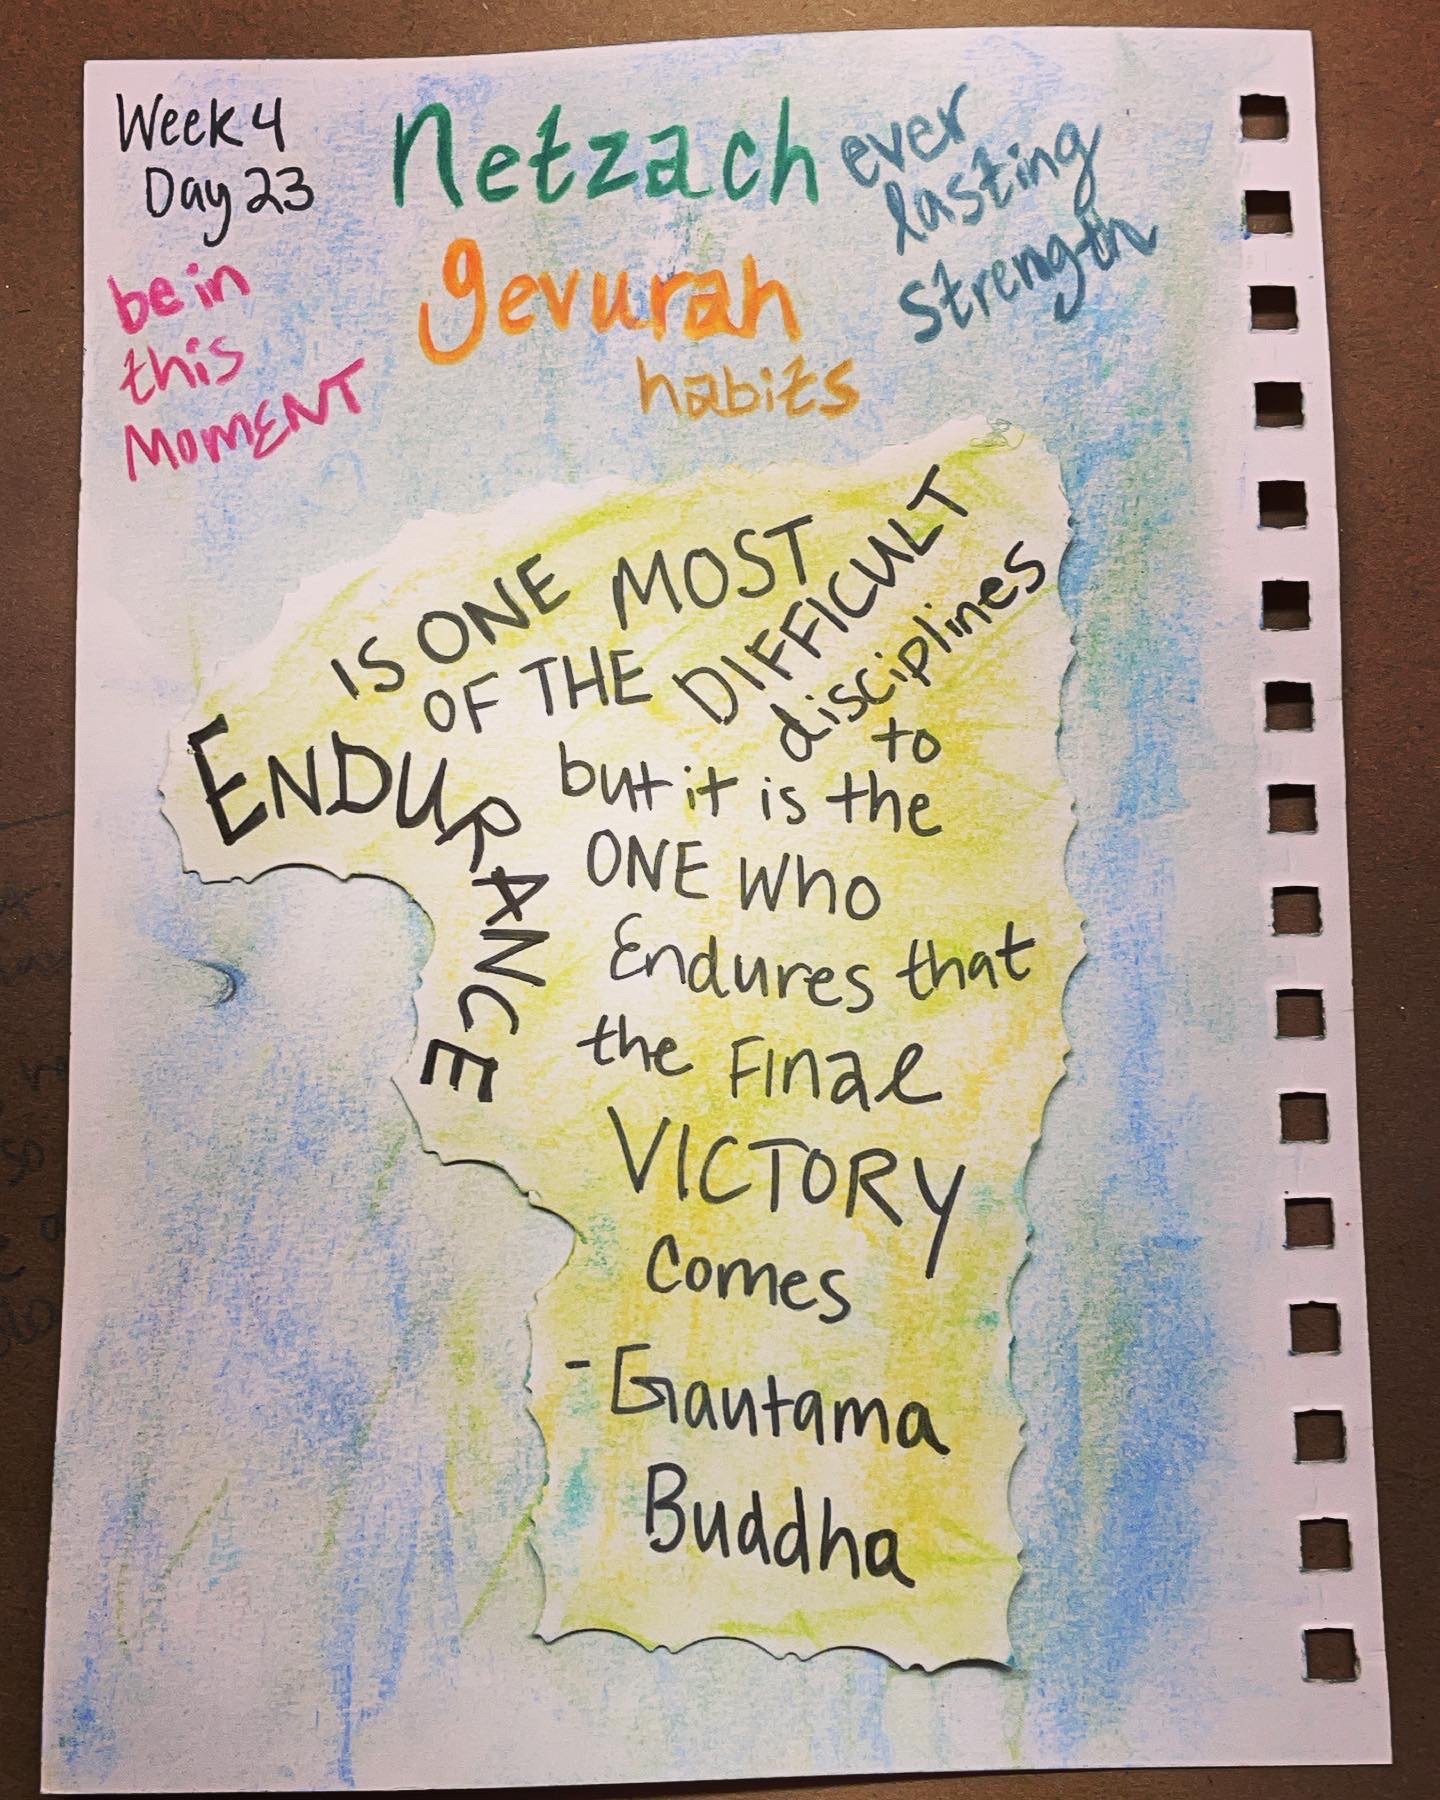 Week 4
Day 23
be in
this
MOMENT
Netzach
gevurah
habits
ever
lasting
strength
ENDURANCE
IS ONE MOST
OF THE DIFFICULT
disciplines
to
but it is the
ONE WHO
Endures that
the Final
VICTORY
Comes
- Gautama
Buddha